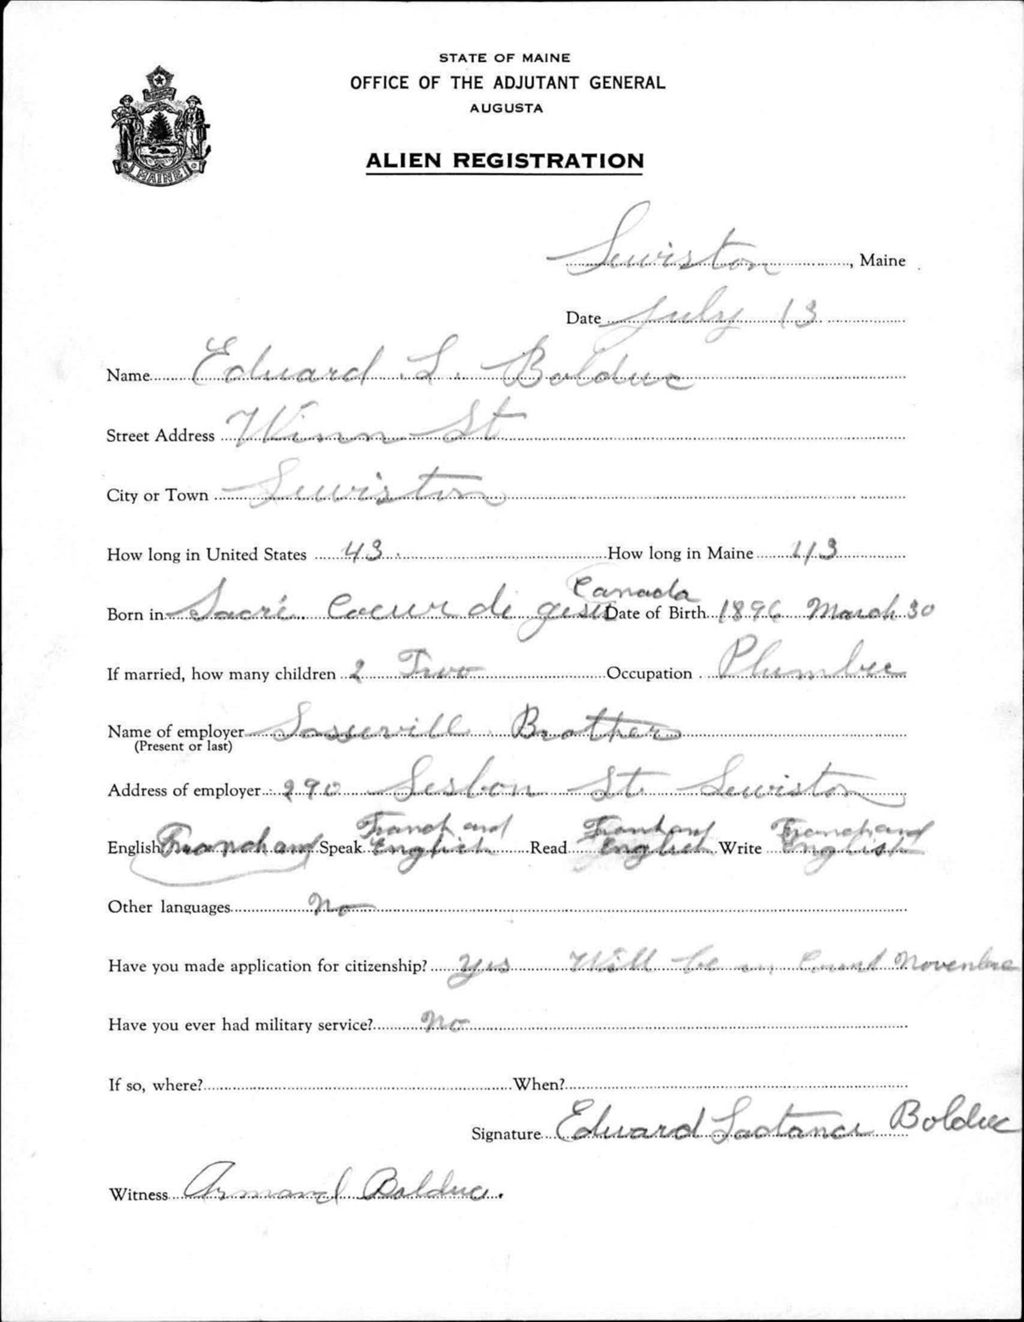 STATE OF MAINE
OFFICE OF THE ADJUTANT GENERAL
AUGUSTA
MAINE
ALIEN REGISTRATION
Lewiston, Maine
Date July 13
Name Eduard L. Bolduc
Street Address Winn St
City or Town Lewiston
How long in United States 43. How long in Maine 43
Canada
Born in Sacré Coeur de gesu Date of Birth 1896 March 30
If married, how many children 2 Two Occupation Plumber
Name of employer Sassevill Brothers
(Present or last)
Address of employer 290 Lesbon St. Lewiston
English Franch and Speak Franch and English Read Franch and English Write Franch and English
Other languages No
Have you made application for citizenship? Yes Will be in Court Novenbre
Have you ever had military service? No
If so, where? When?
Signature Eduard Lactance Bolduc
Witness Armand Bolduc.